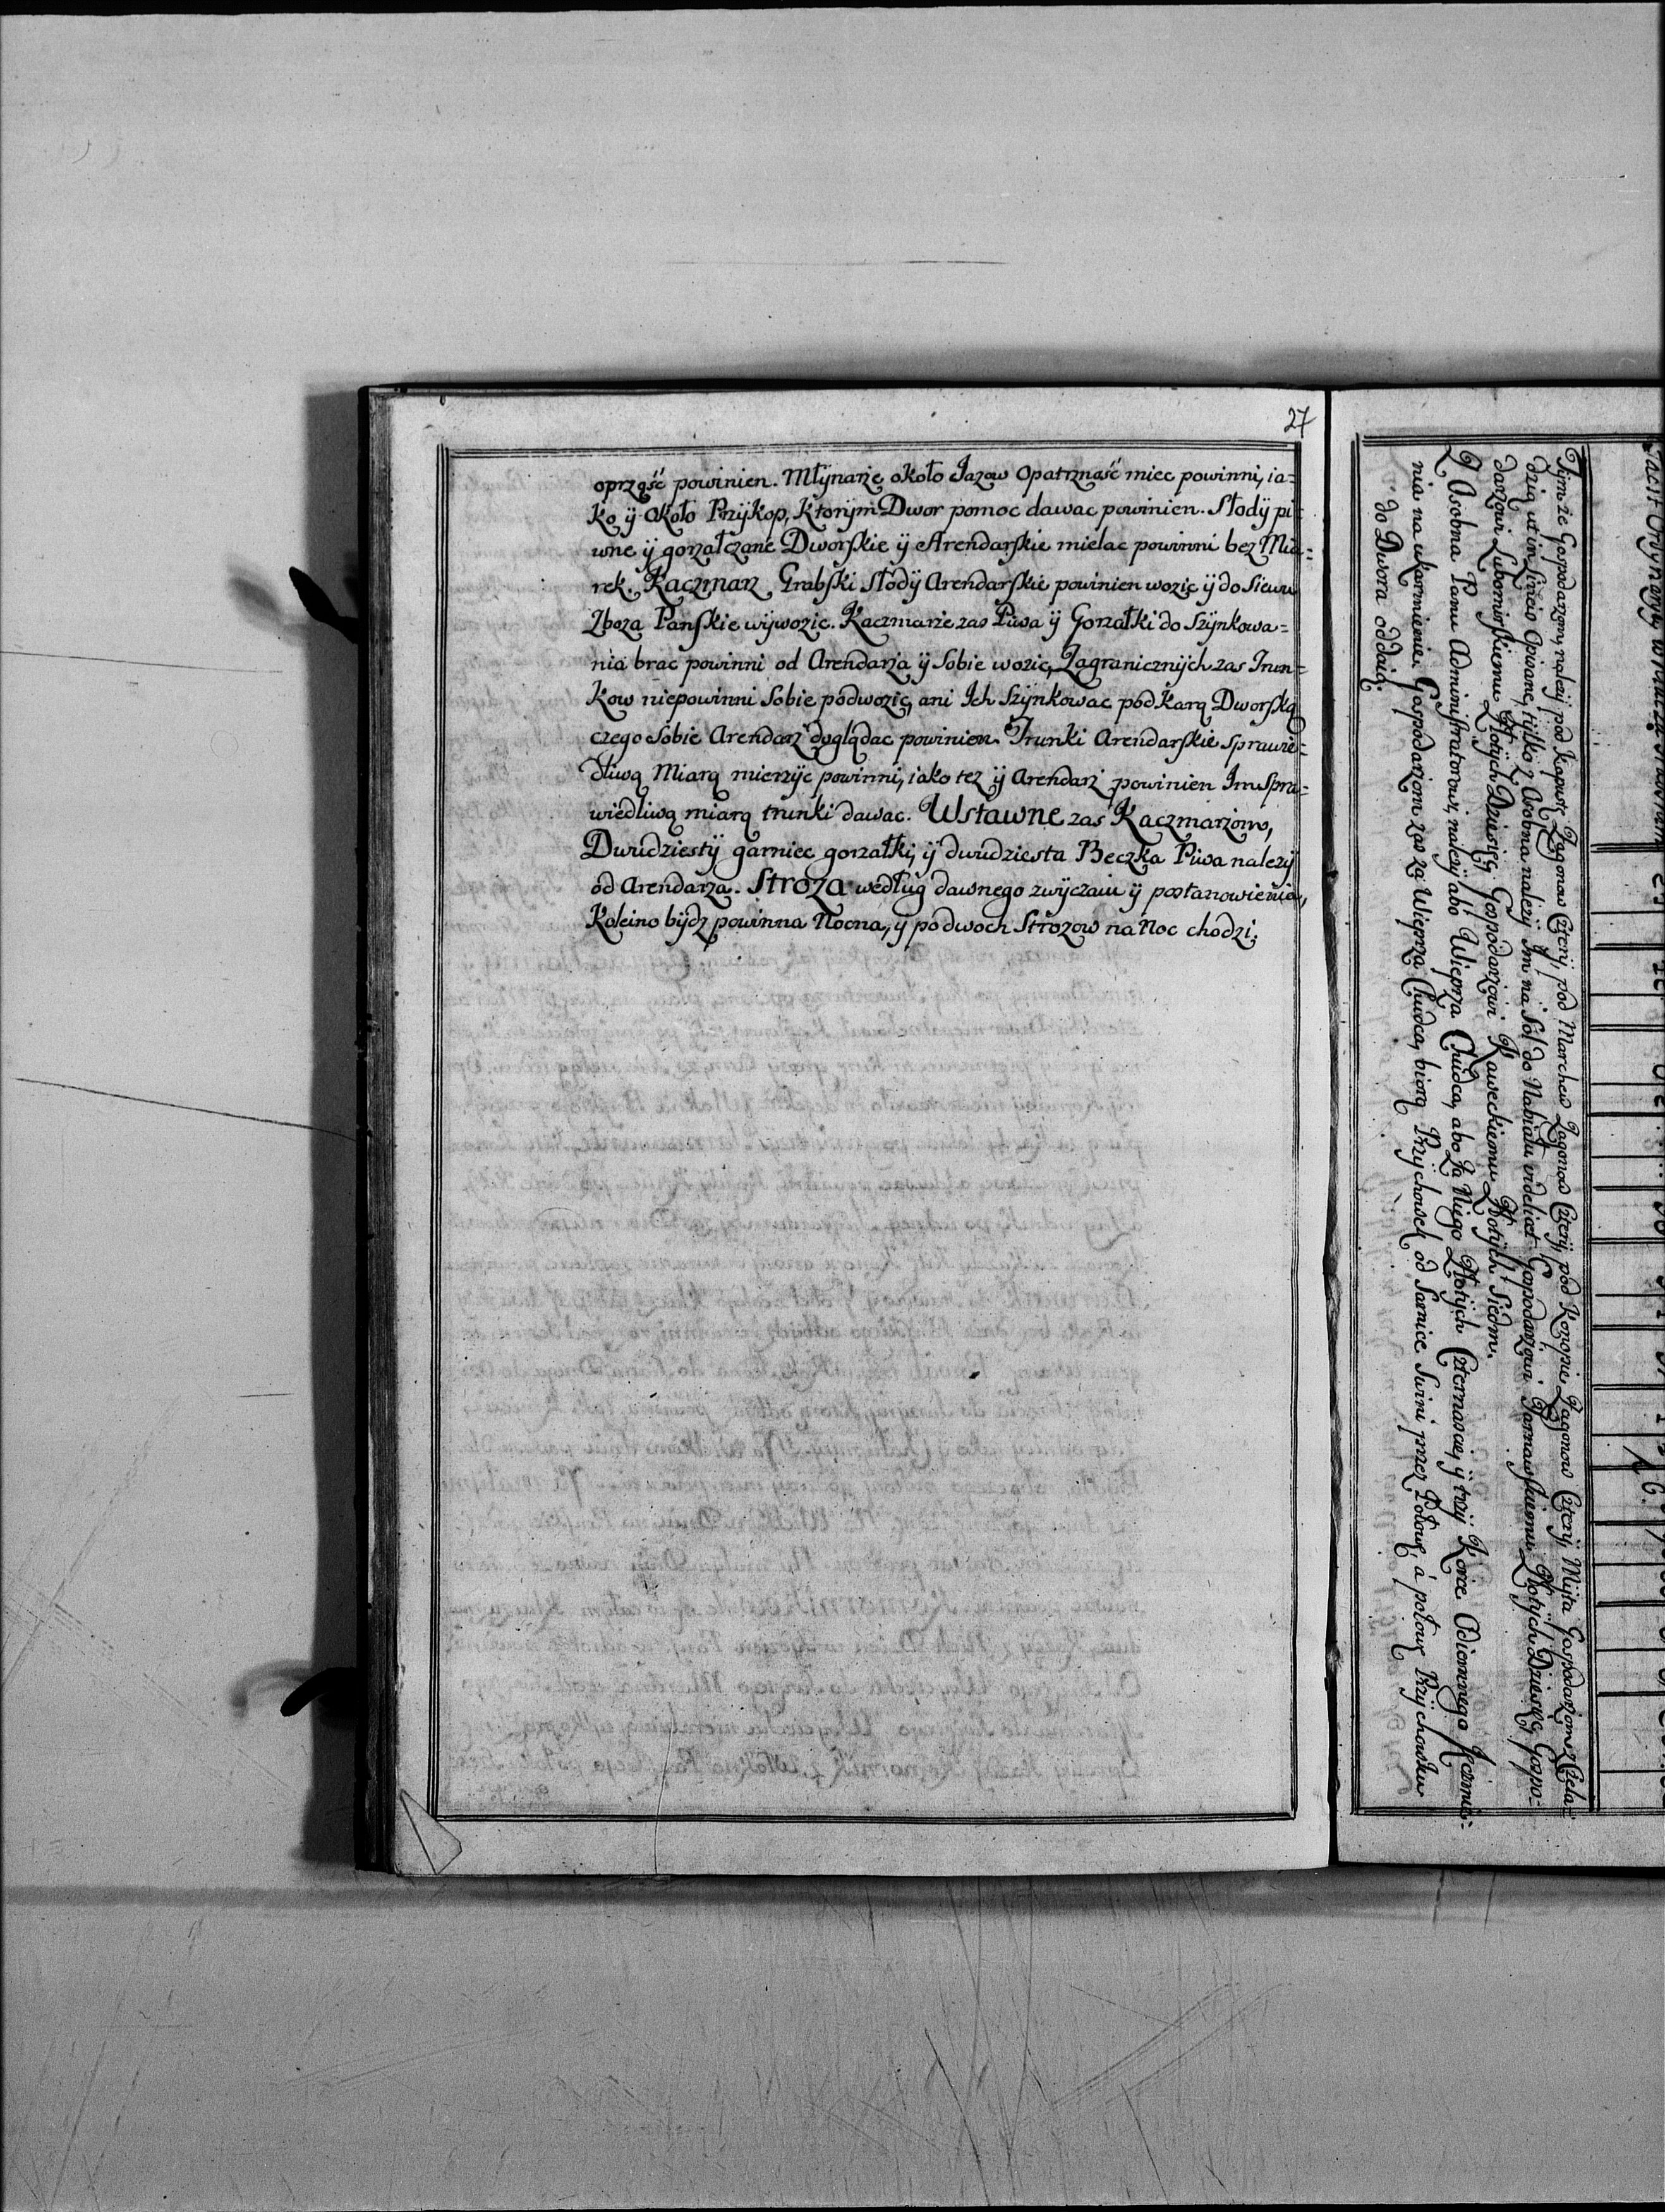 27
oprząść powinien. Młÿnarze około Jazow opatrznaść miec powinni, ia=
ko ÿ około Przÿkop, Ktorÿm Dwor pomoc dawac powinien. Słodÿ pi=
wne ÿ gorzałczane Dworskie ÿ Arendarskie mielac powinni bez Mia=
rek. Kaczmarz Grabski Słodÿ Arendarskie powinien wozic ÿ do Siewu
Zboza Panskie wÿwozic. Kaczmarze zas Piwa ÿ Gorzałki do Szÿnkowa=
nia brac powinni od Arendarza ÿ Sobie wozic, Zagranicznÿch zas Trun=
kow niepowinni Sobie podwozic, ani Ich Szÿnkowac pod Karą Dworską
czego Sobie Arendarz doglądac powinien. Trunki Arendarskie Sprawie=
dliwą Miarą mierzÿc powinni, iako tez ÿ Arendarz powinien Im Spra=
wiedliwą miarą trunki dawac. Wstawne zas Kaczmarzom,
Dwudziestÿ garniec gorzałki, ÿ dwudziesta Beczka Piwa nalezÿ
od Arendarza. Stroza według dawnego zwÿczaiu ÿ postanowienia,
Koleino bÿdz powinna Nocna, ÿ po dwoch Strozow na Noc chodzi.
Tÿmże Gospodarzom, nalezÿ pod Kapustę Zagonow Czterÿ, pod Marchew Zagonow Czterÿ, pod Konopie Zagonow Czterÿ, Mÿta Gospodarzom z Czela=
dzią ut in Simili Opisane, tÿlko z Osobna nalezÿ Im na Sol do Nabiału videlicet Gospodarzowi Tarnawskiemu Złotÿch Dziesięc, Gospo=
darzowi Lubomirskiemu Złotÿch Dziesięc, Gospodarzowi Kaweckiemu Złotÿch Siedm.
Z Osobna Panu Administratorowi, nalezÿ abo Wieprza Chudca, abo Za Niego Złotÿch Czternascie, ÿ trzÿ Korce Odiemnego Karmie=
nia na ukarmienie. Gospodarzom zas za Wieprza Chudca, biorą Przÿchowek od Samice Swini przez Połowę, á połowę Przÿchowku
do Dwora oddaią.